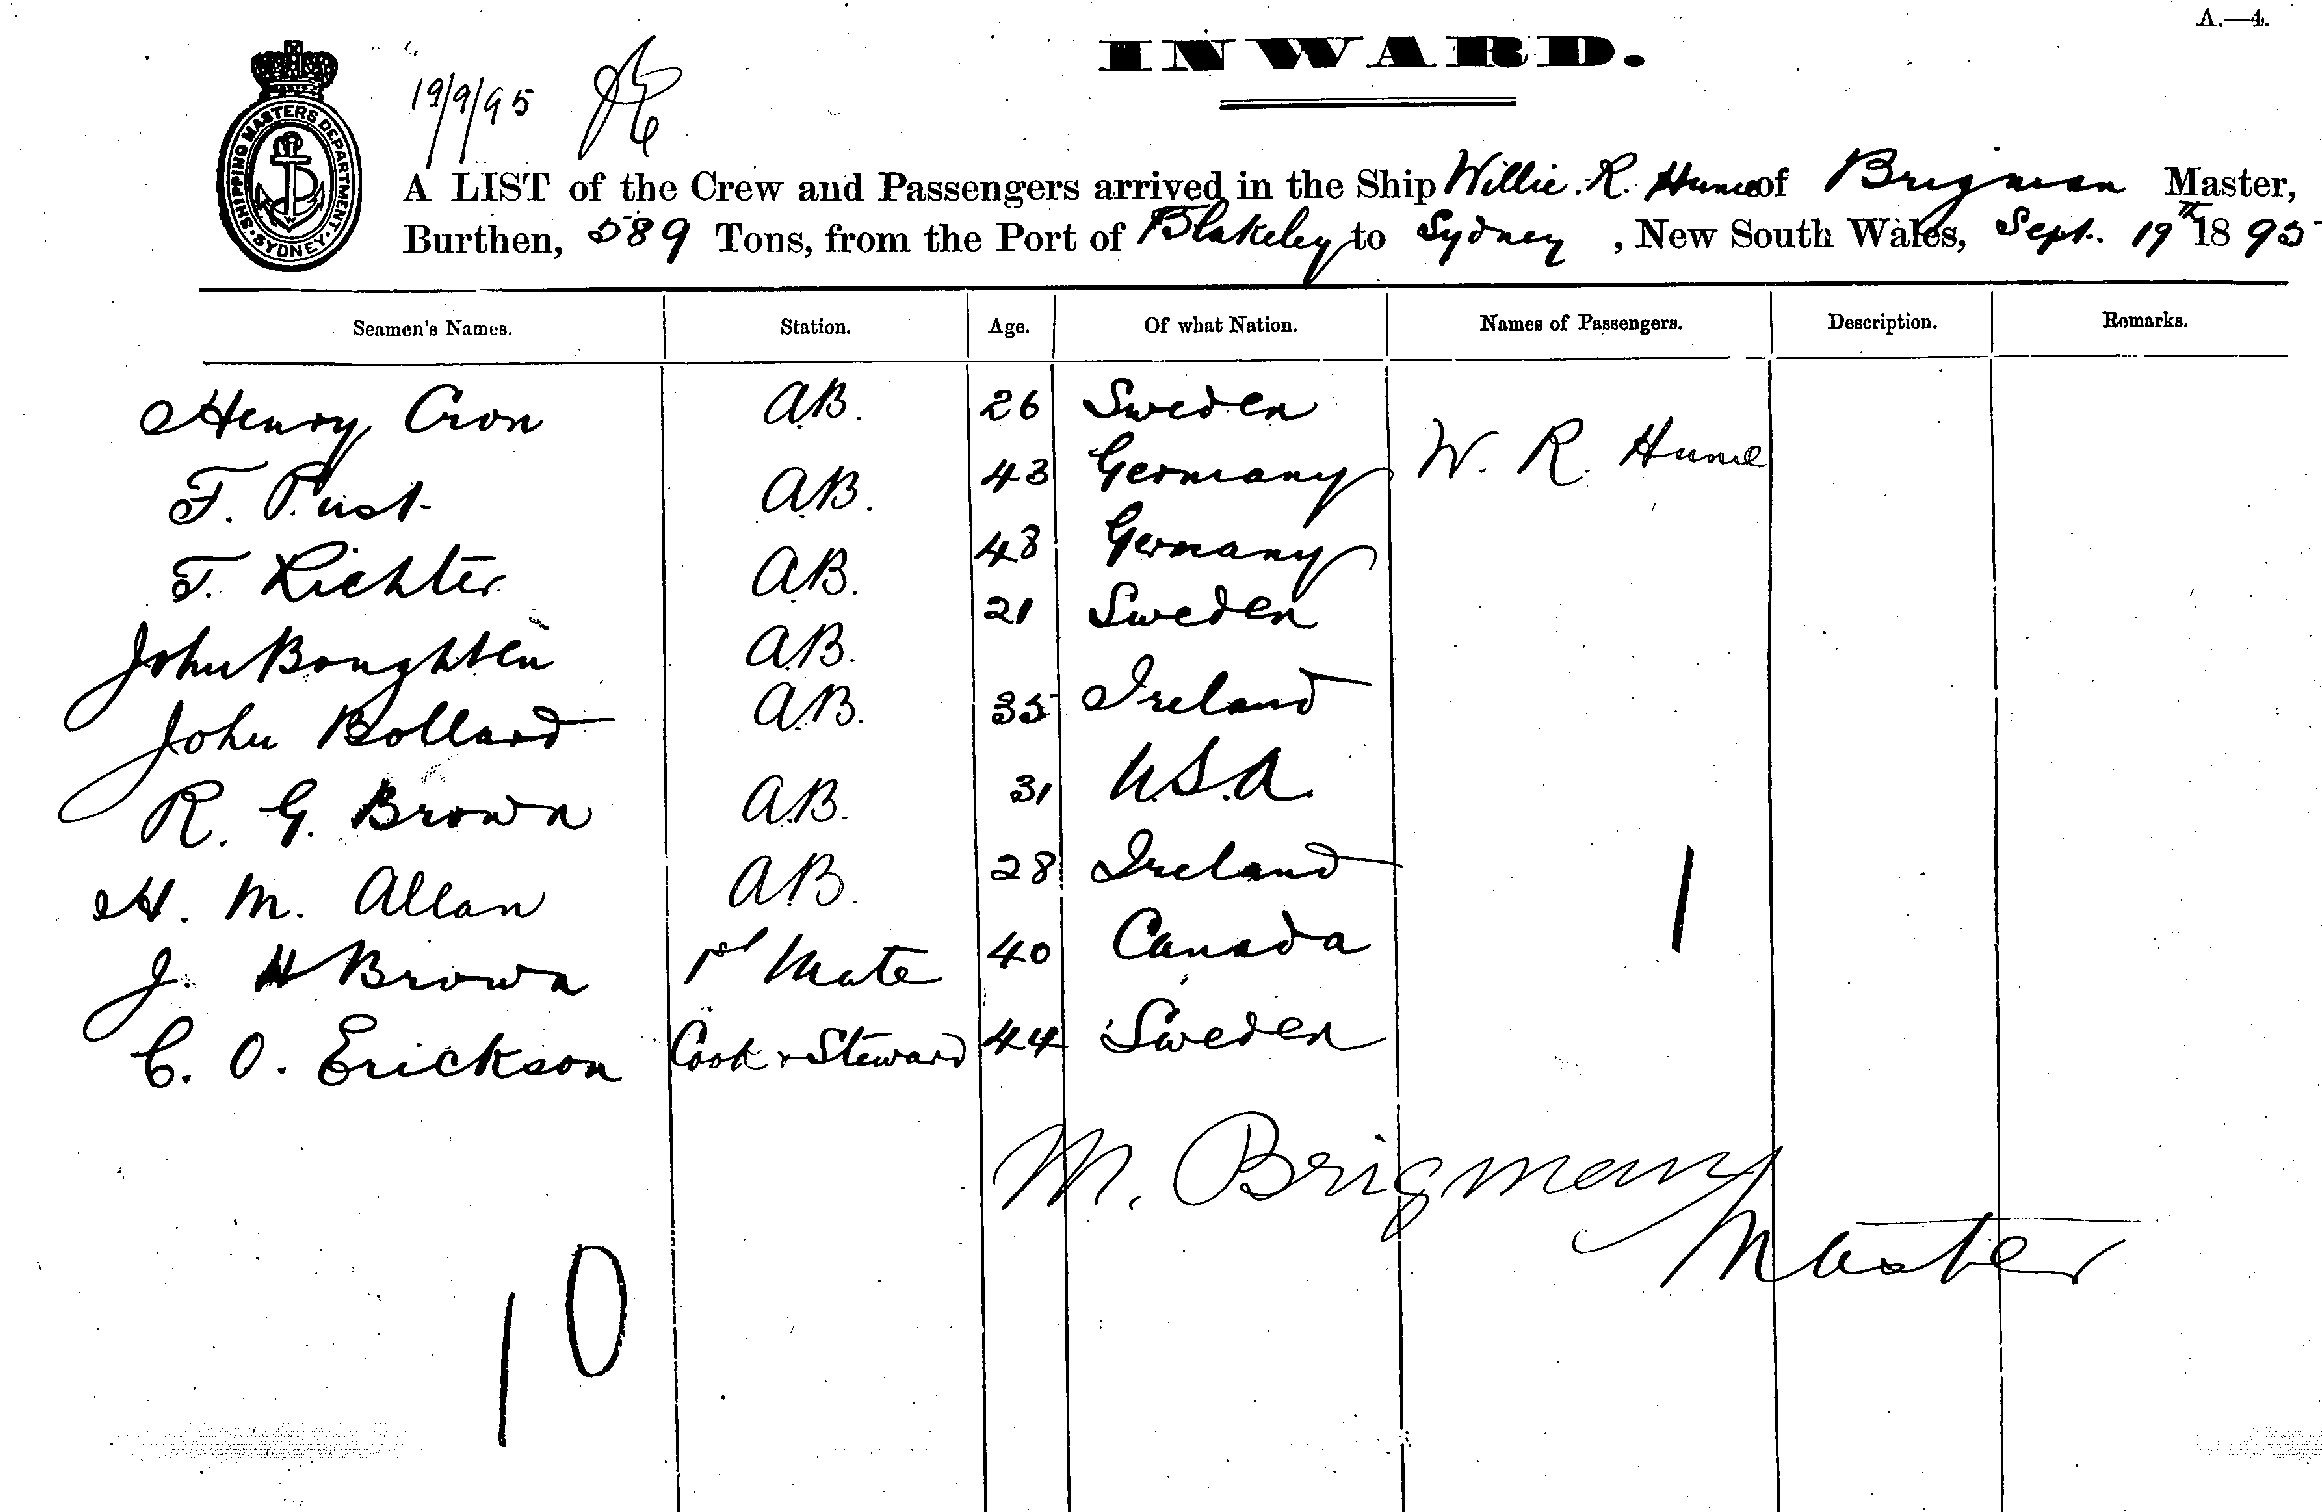 A.—4.
INWARD.
SHIPPING MASTERS DEPARTMENT · SYDNEY ·
19/9/95
A LIST of the Crew and Passengers arrived in the Ship Willie. R. Hume of Brigman Master,
Burthen, 589 Tons, from the Port of Blakeley to Sydney, New South Wales, Sept. 19th 1895
Seamen's Names. Station. Age. Of what Nation. Names of Passengers. Description. Remarks.
Henry Cron A.B. 26 Sweden W. R. Hume
F. Pust A.B. 43 Germany
F. Richter A.B. 48 Germany
John Boughten A.B. 21 Sweden
John Bollard A.B. 35 Ireland
R. G. Brown A.B. 31 U.S.A.
H. M. Allan A.B. 28 Ireland 1
J. H Brown 1st Mate 40 Canada
C. O. Erickson Cook & Steward 44 Sweden
M. Brigman
Master
10